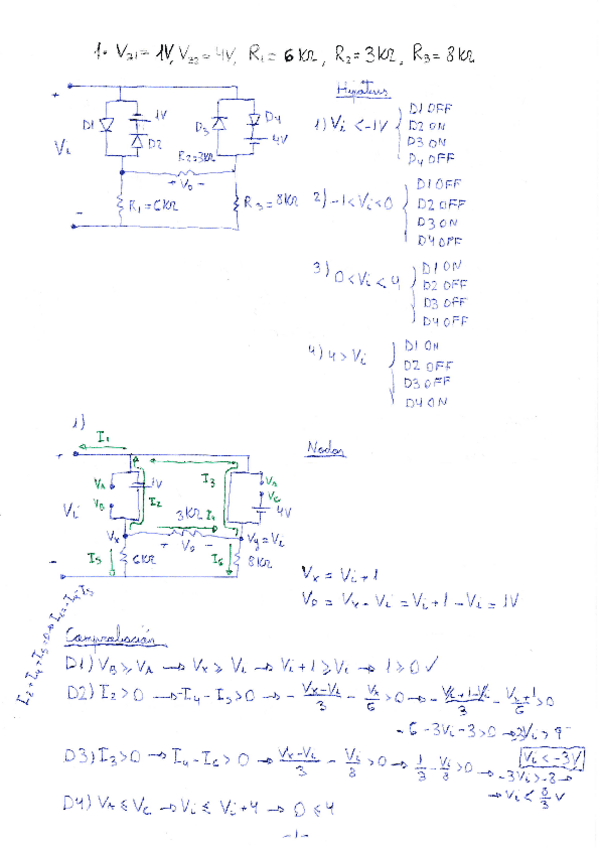 1. Vz1 = 1V, Vz2 = 4V, R1 = 6KΩ, R2 = 3KΩ, R3 = 8KΩ
Hipótesis
+
Vi
-
D1
1V
D2
D3
D4
4V
R2=3KΩ
+ Vo -
R1=6KΩ
R3=8KΩ
1) Vi < -1V
D1 OFF
D2 ON
D3 ON
D4 OFF
2) -1 < Vi < 0
D1 OFF
D2 OFF
D3 ON
D4 OFF
3) 0 < Vi < 4
D1 ON
D2 OFF
D3 OFF
D4 OFF
4) 4 > Vi
D1 ON
D2 OFF
D3 OFF
D4 ON
1)
I1
+
Vi
-
VA
VB
1V
I2
I3
VA
VC
4V
3KΩ
I4
Vx
+ Vo -
Vy = Vi
I5
6KΩ
I6
8KΩ
Nodos
Vx = Vi + 1
Vo = Vx - Vi = Vi + 1 - Vi = 1V
I2 + I4 + I5 = 0 → I2 = -I4 - I5
Comprobación
D1) VB ≥ VA → Vx ≥ Vi → Vi + 1 ≥ Vi → 1 ≥ 0 ✓
D2) I2 > 0 → -I4 - I5 > 0 → - (Vx - Vi)/3 - Vx/6 > 0 → - (Vi + 1 - Vi)/3 - (Vi + 1)/6 > 0
Vi < -3V
D3) I3 > 0 → I4 - I6 > 0 → (Vx - Vi)/3 - Vi/8 > 0 → 1/3 - Vi/8 > 0 → -3Vi > -8 →
→ Vi < 8/3 V
D4) VA ≤ VC → Vi ≤ Vi + 4 → 0 ≤ 4
-1-